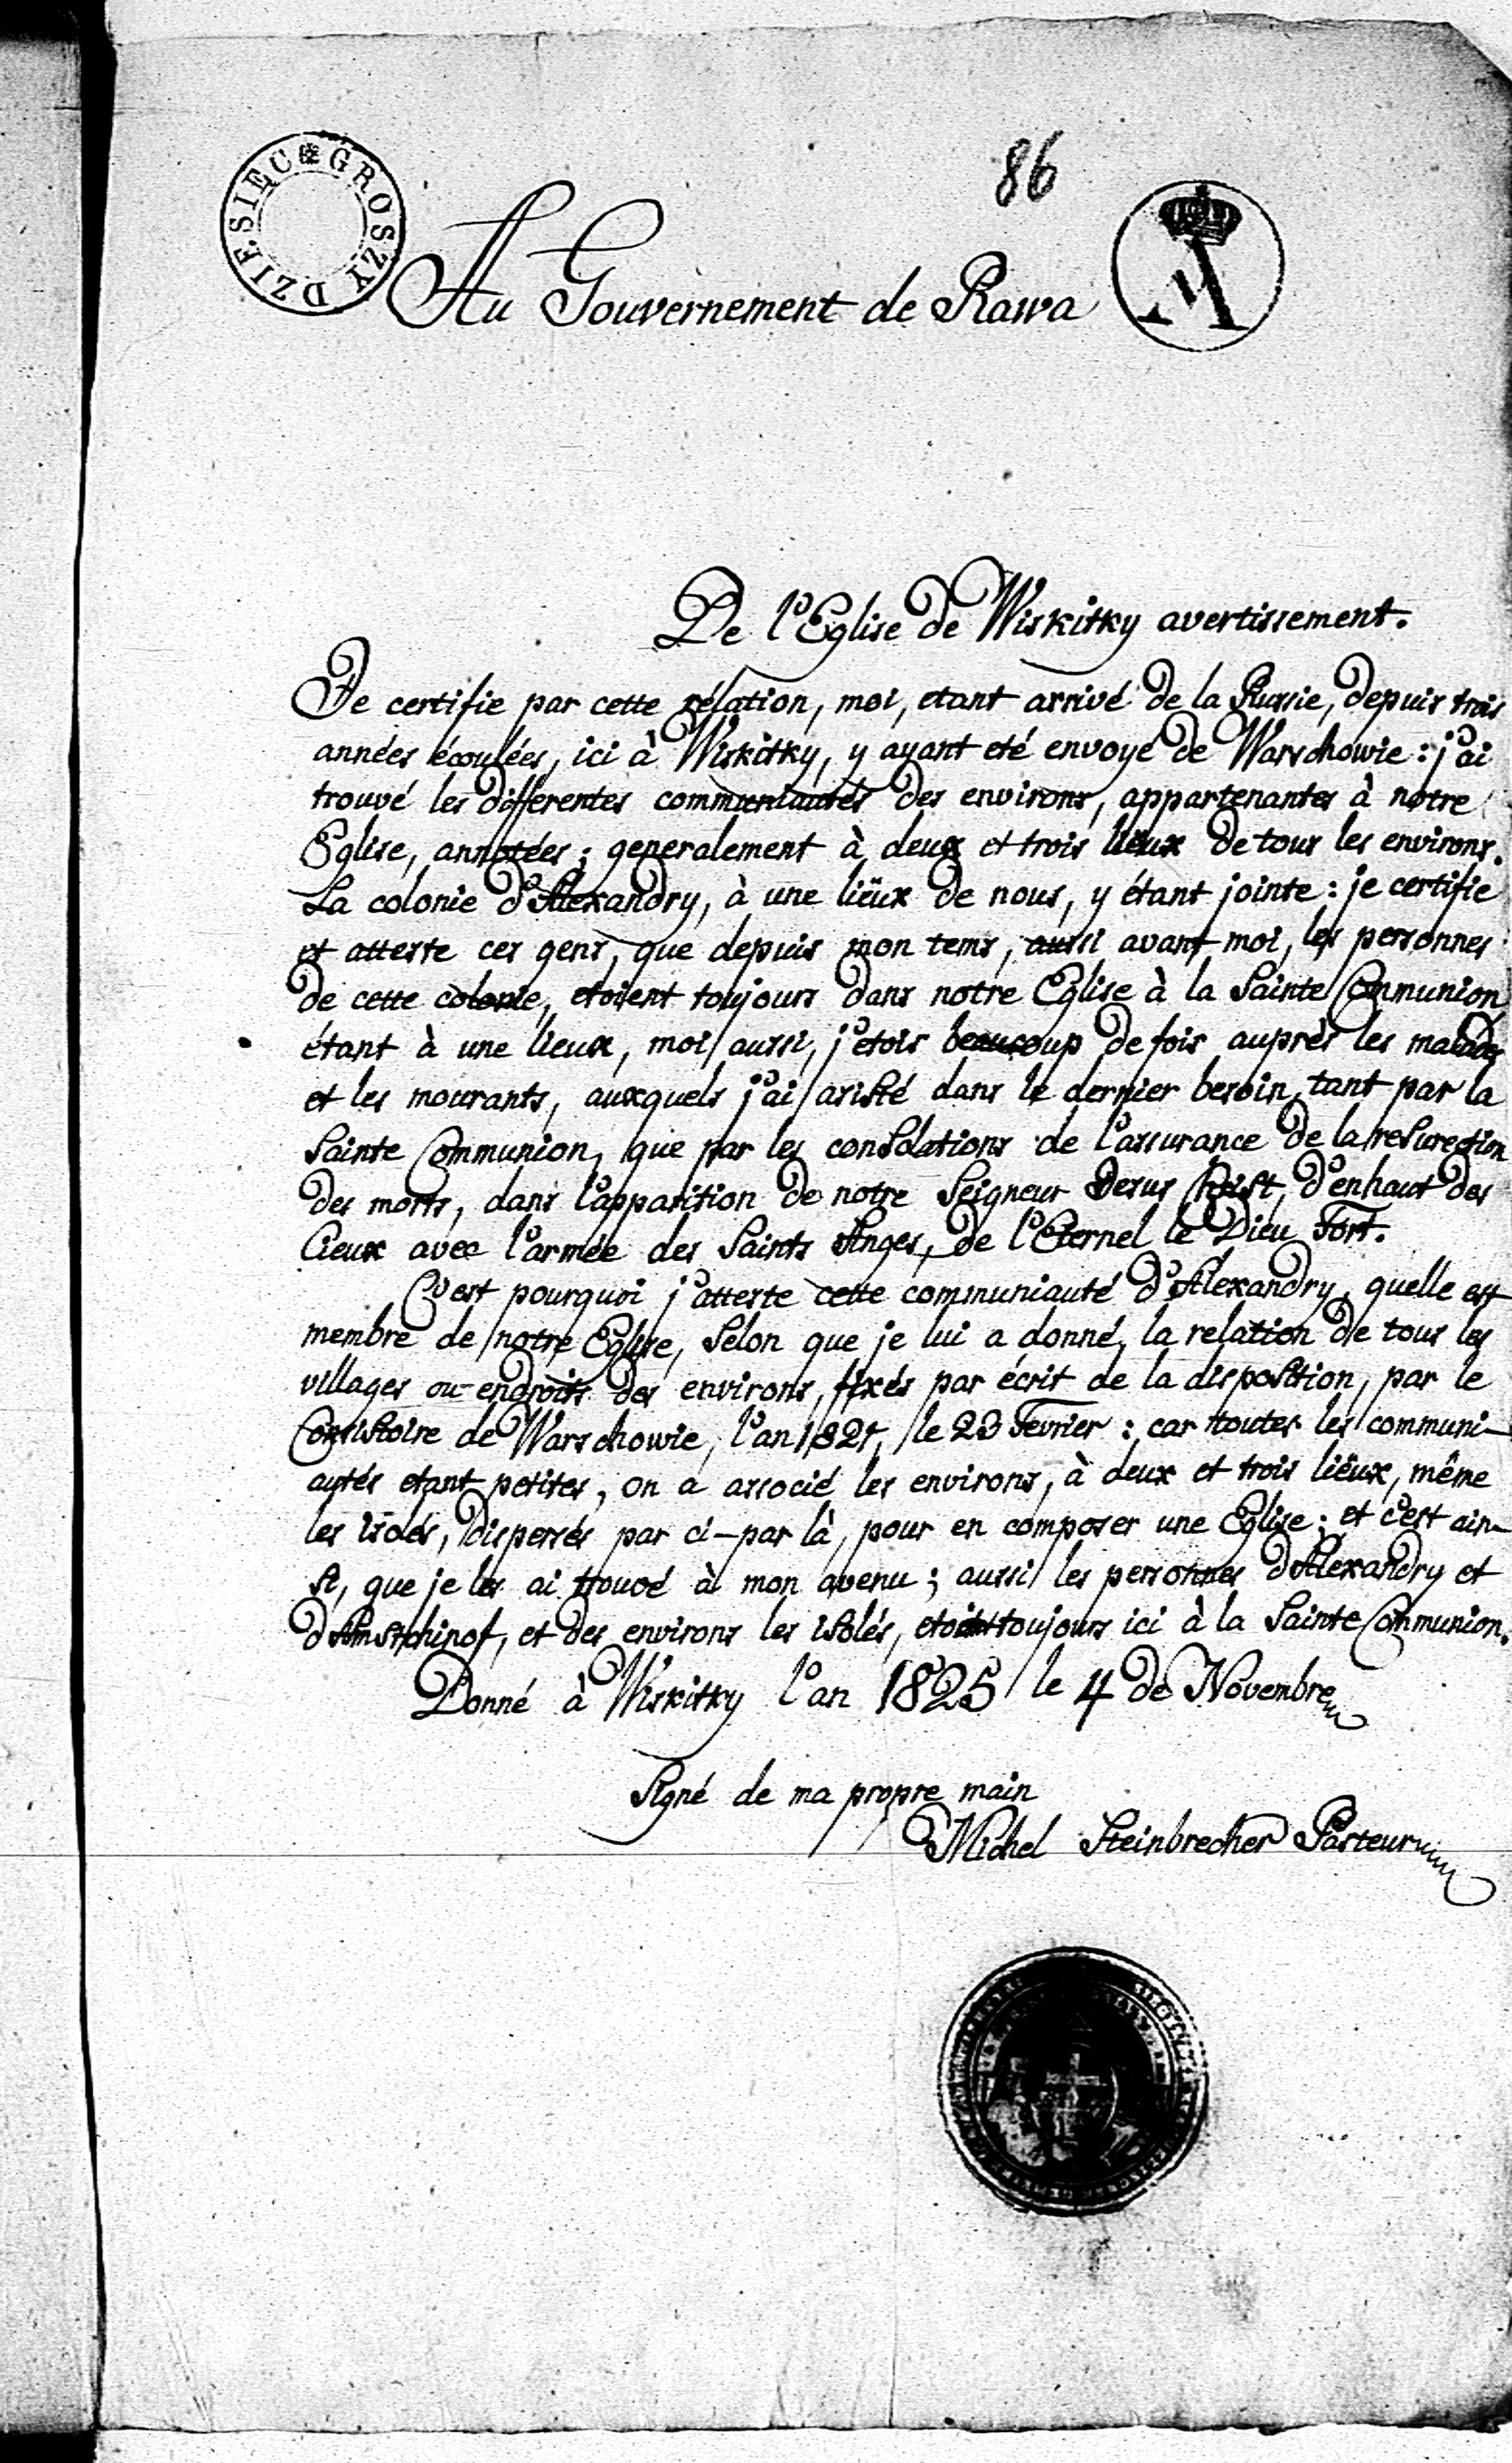 86
DZIESIĘC GROSZY
Au Gouvernement de Rawa
De l'Eglise de Wiskitky avertissement.
Je certifie par cette rélation, moi, etant arrivé de la Russie, depuis trois
années écoulées, ici à Wiskitky, y ayant eté envoyé de Warschowie : j'ai
trouvé les differentes communiautés des environs, appartenantes à notre
Eglise, annotées ; generalement à deux et trois liëux de tous les environs.
La colonie d'Alexandry, à une liëux de nous, y étant jointe : je certifie
et atteste ces gens, que depuis mon tems, aussi avant moi, les personnes
de cette colonie, etoient toujours dans notre Eglise à la Sainte Communion
étant à une lieux, moi aussi, j'etois beaucoup de fois auprès les malades
et les mourants, auxquels j'ai assisté dans le dernier besoin, tant par la
Sainte Communion, que par les consolations de l'assurance de la resurection
des morts, dans l'apparition de notre Seigneur Jesus Christ, d'enhaut des
Cieux avec l'armée des Saints Anges, de l'Eternel le Dieu Fort.
C'est pourquoi j'atteste cette communiauté d'Alexandry, quelle est
membre de notre Eglise, selon que je lui a donné, la relation de tous les
villages ou endroits des environs, fixés par écrit de la disposition, par le
Consistoire de Warschowie, l'an le 23 Fevrier : car toutes les communi-
autés etant petites, on a associé les environs, à deux et trois liëux, même
les isolés, dispersés par ci-par là, pour en composer une Eglise ; et c'est ain-
si, que je les ai trouvé à mon avenu ; aussi les personnes d'Alexandry et
et des environs les isolés, etoient toujours ici à la Sainte Communion.
Donné à Wiskitky l'an 1825 le 4 de Novembre
Signé de ma propre main
Michel Steinbrecher Pasteur